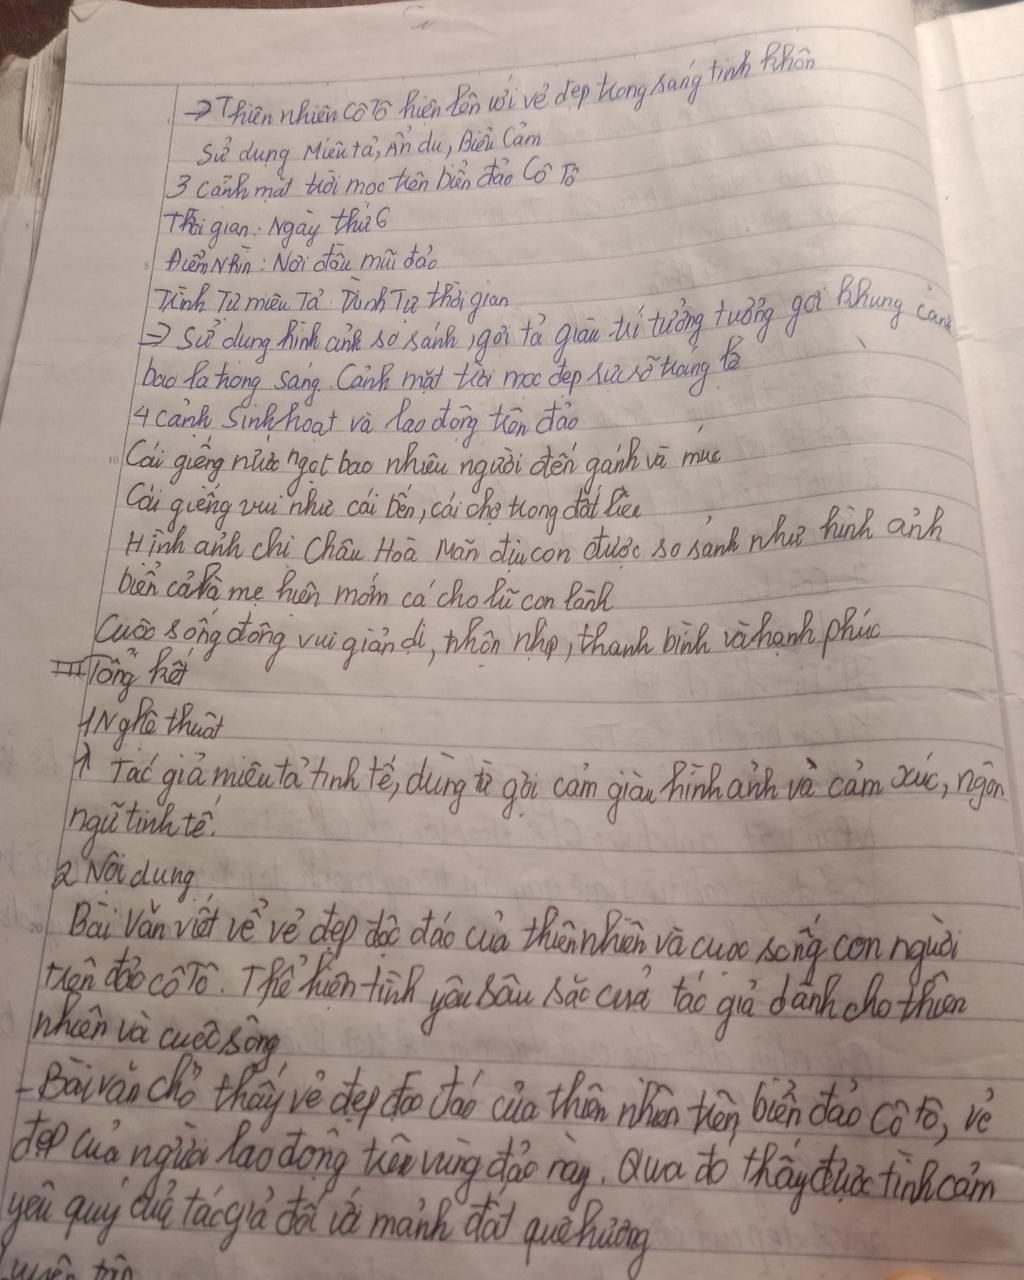 → Thiên nhiên Cô Tô hiện lên với vẻ đẹp trong sáng tinh khôn
Sử dụng Miêu tả, Ẩn dụ, Biểu Cảm
3 cảnh mặt trời mọc trên biển đảo Cô Tô
Thời gian: Ngày thứ 6
Điểm Nhìn: Nơi đầu mũi đảo
Trình Tự miêu Tả Trình Tự thời gian
⇒ Sử dụng hình ảnh so sánh, gợi tả giàu trí tưởng tưởng gợi khung cảnh
bao la trong sáng. Cảnh mặt trời mọc đẹp rực rỡ tráng lệ
4 cảnh Sinh hoạt và lao động trên đảo
Cái giếng nước ngọt bao nhiêu người đến gánh và múc
Cái giếng vui như cái bến, cái chợ trong đất liền
Hình ảnh chị Châu Hoà Mãn địu con được so sánh như hình ảnh
biển cả là mẹ hiền mớm cá cho lũ con lành
Cuộc sống đông vui giản dị, nhộn nhịp, thanh bình và hạnh phúc
III Tổng kết
1 Nghệ thuật
Tác giả miêu tả tinh tế, dùng từ gợi cảm giàu hình ảnh và cảm xúc, ngôn
ngữ tinh tế.
2 Nội dung
Bài Văn viết về vẻ đẹp độc đáo của thiên nhiên và cuộc sống con người
trên đảo Cô Tô. Thể hiện tình yêu sâu sắc của tác giả dành cho thiên
nhiên và cuộc sống
- Bài văn cho thấy vẻ đẹp độc đáo của thiên nhiên trên biển đảo Cô Tô, vẻ
đẹp của người lao động trên vùng đảo này. Qua đó thấy được tình cảm
yêu quý của tác giả đối với mảnh đất quê hương